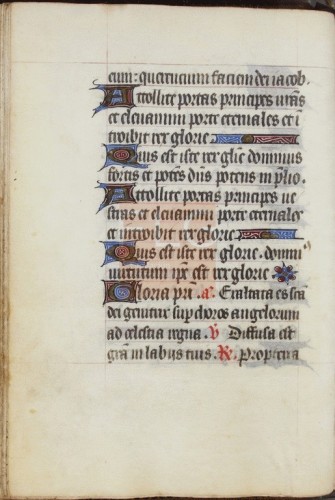 eum: querentium faciem dei iacob.
Attollite portas principes uras
et eleuamini porte eternales et i
troibit rex glorie.
Quis est iste rex glie dominus
fortis et potes dns potens in plio.
Attollite portas principes ue
stras et eleuamini porte eternales
et introibit rex glorie.
Quis est iste rex glorie. domin
uirtutum ipe est rex glorie
Gloria pri. a. Exaltata es sca
dei genitrix sup choros angelorum
ad celestia regna. V Diffusa est
gra in labijs tuis. R. Propterea